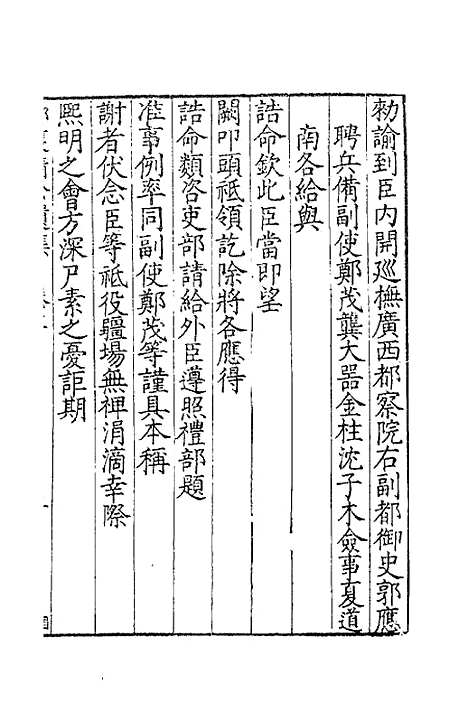 勑諭到臣内開廵撫廣西都察院右副都御史郭應
聘兵備副使鄭茂龔大器金柱沈子木僉事夏道
南各給與
誥命欽此臣當即望
闕叩頭祗領訖除將各應得
誥命類咨吏部請給外臣遵照禮部題
准事例率同副使鄭茂等謹具本稱
謝者伏念臣等祗役疆場無裨涓滴幸際
熈明之會方深尸素之憂詎期